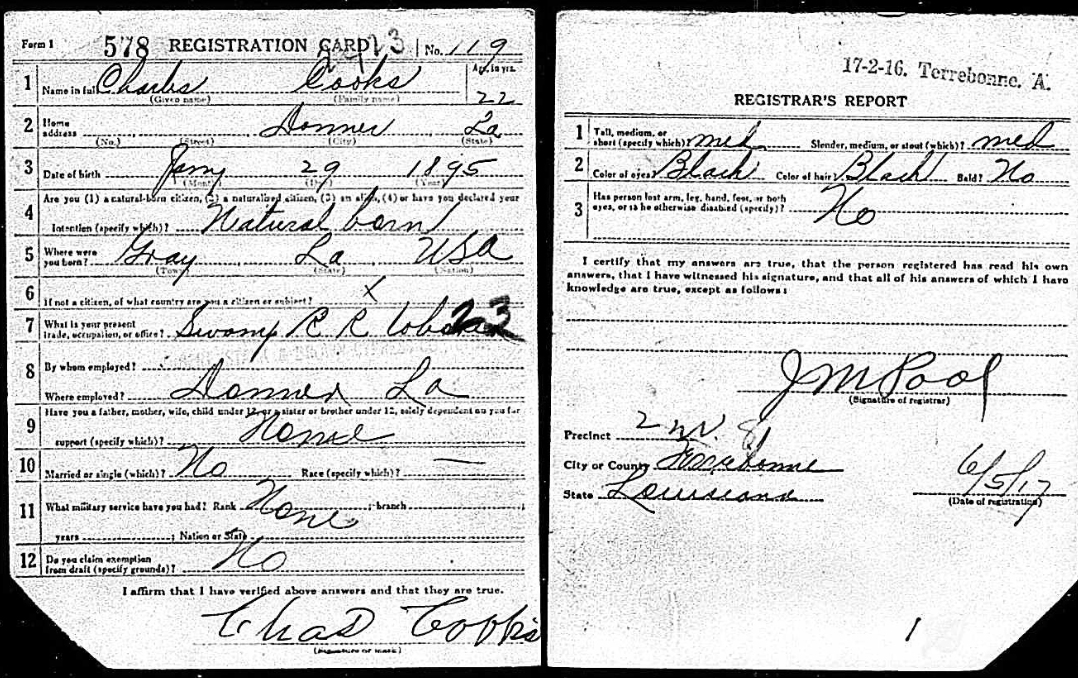 Form 1 578 REGISTRATION CARD No. 119
1 Name in full Charles Cooks Age, in yrs. 22
(Given name) (Family name)
2 Home address Donner La
(No.) (Street) (City) (State)
3 Date of birth Jany 29 1895
(Month) (Day) (Year)
4 Are you (1) a natural-born citizen, (2) a naturalized citizen, (3) an alien, (4) or have you declared your
intention (specify which)? Natural born
5 Where were you born? Gray La USA
(Town) (State) (Nation)
6 If not a citizen, of what country are you a citizen or subject? X
7 What is your present trade, occupation, or office? Swamp R R 23
8 By whom employed?
Where employed? Donner La
9 Have you a father, mother, wife, child under 12, or a sister or brother under 12, solely dependent on you for
support (specify which)? None
10 Married or single (which)? No Race (specify which)? —
11 What military service have you had? Rank None ; branch ;
years ; Nation or State
12 Do you claim exemption from draft (specify grounds)? No
I affirm that I have verified above answers and that they are true.
Chas Cooks
(Signature or mark)
17-2-16. Terrebonne. A.
REGISTRAR'S REPORT
1 Tall, medium, or short (specify which)? med Slender, medium, or stout (which)? med
2 Color of eyes? Black Color of hair? Black Bald? No
3 Has person lost arm, leg, hand, foot, or both
eyes, or is he otherwise disabled (specify)? No
I certify that my answers are true, that the person registered has read his own
answers, that I have witnessed his signature, and that all of his answers of which I have
knowledge are true, except as follows:
J M Pool
(Signature of registrar)
Precinct 2
City or County Terrebonne
State Louisiana 6/5/17
(Date of registration)
1